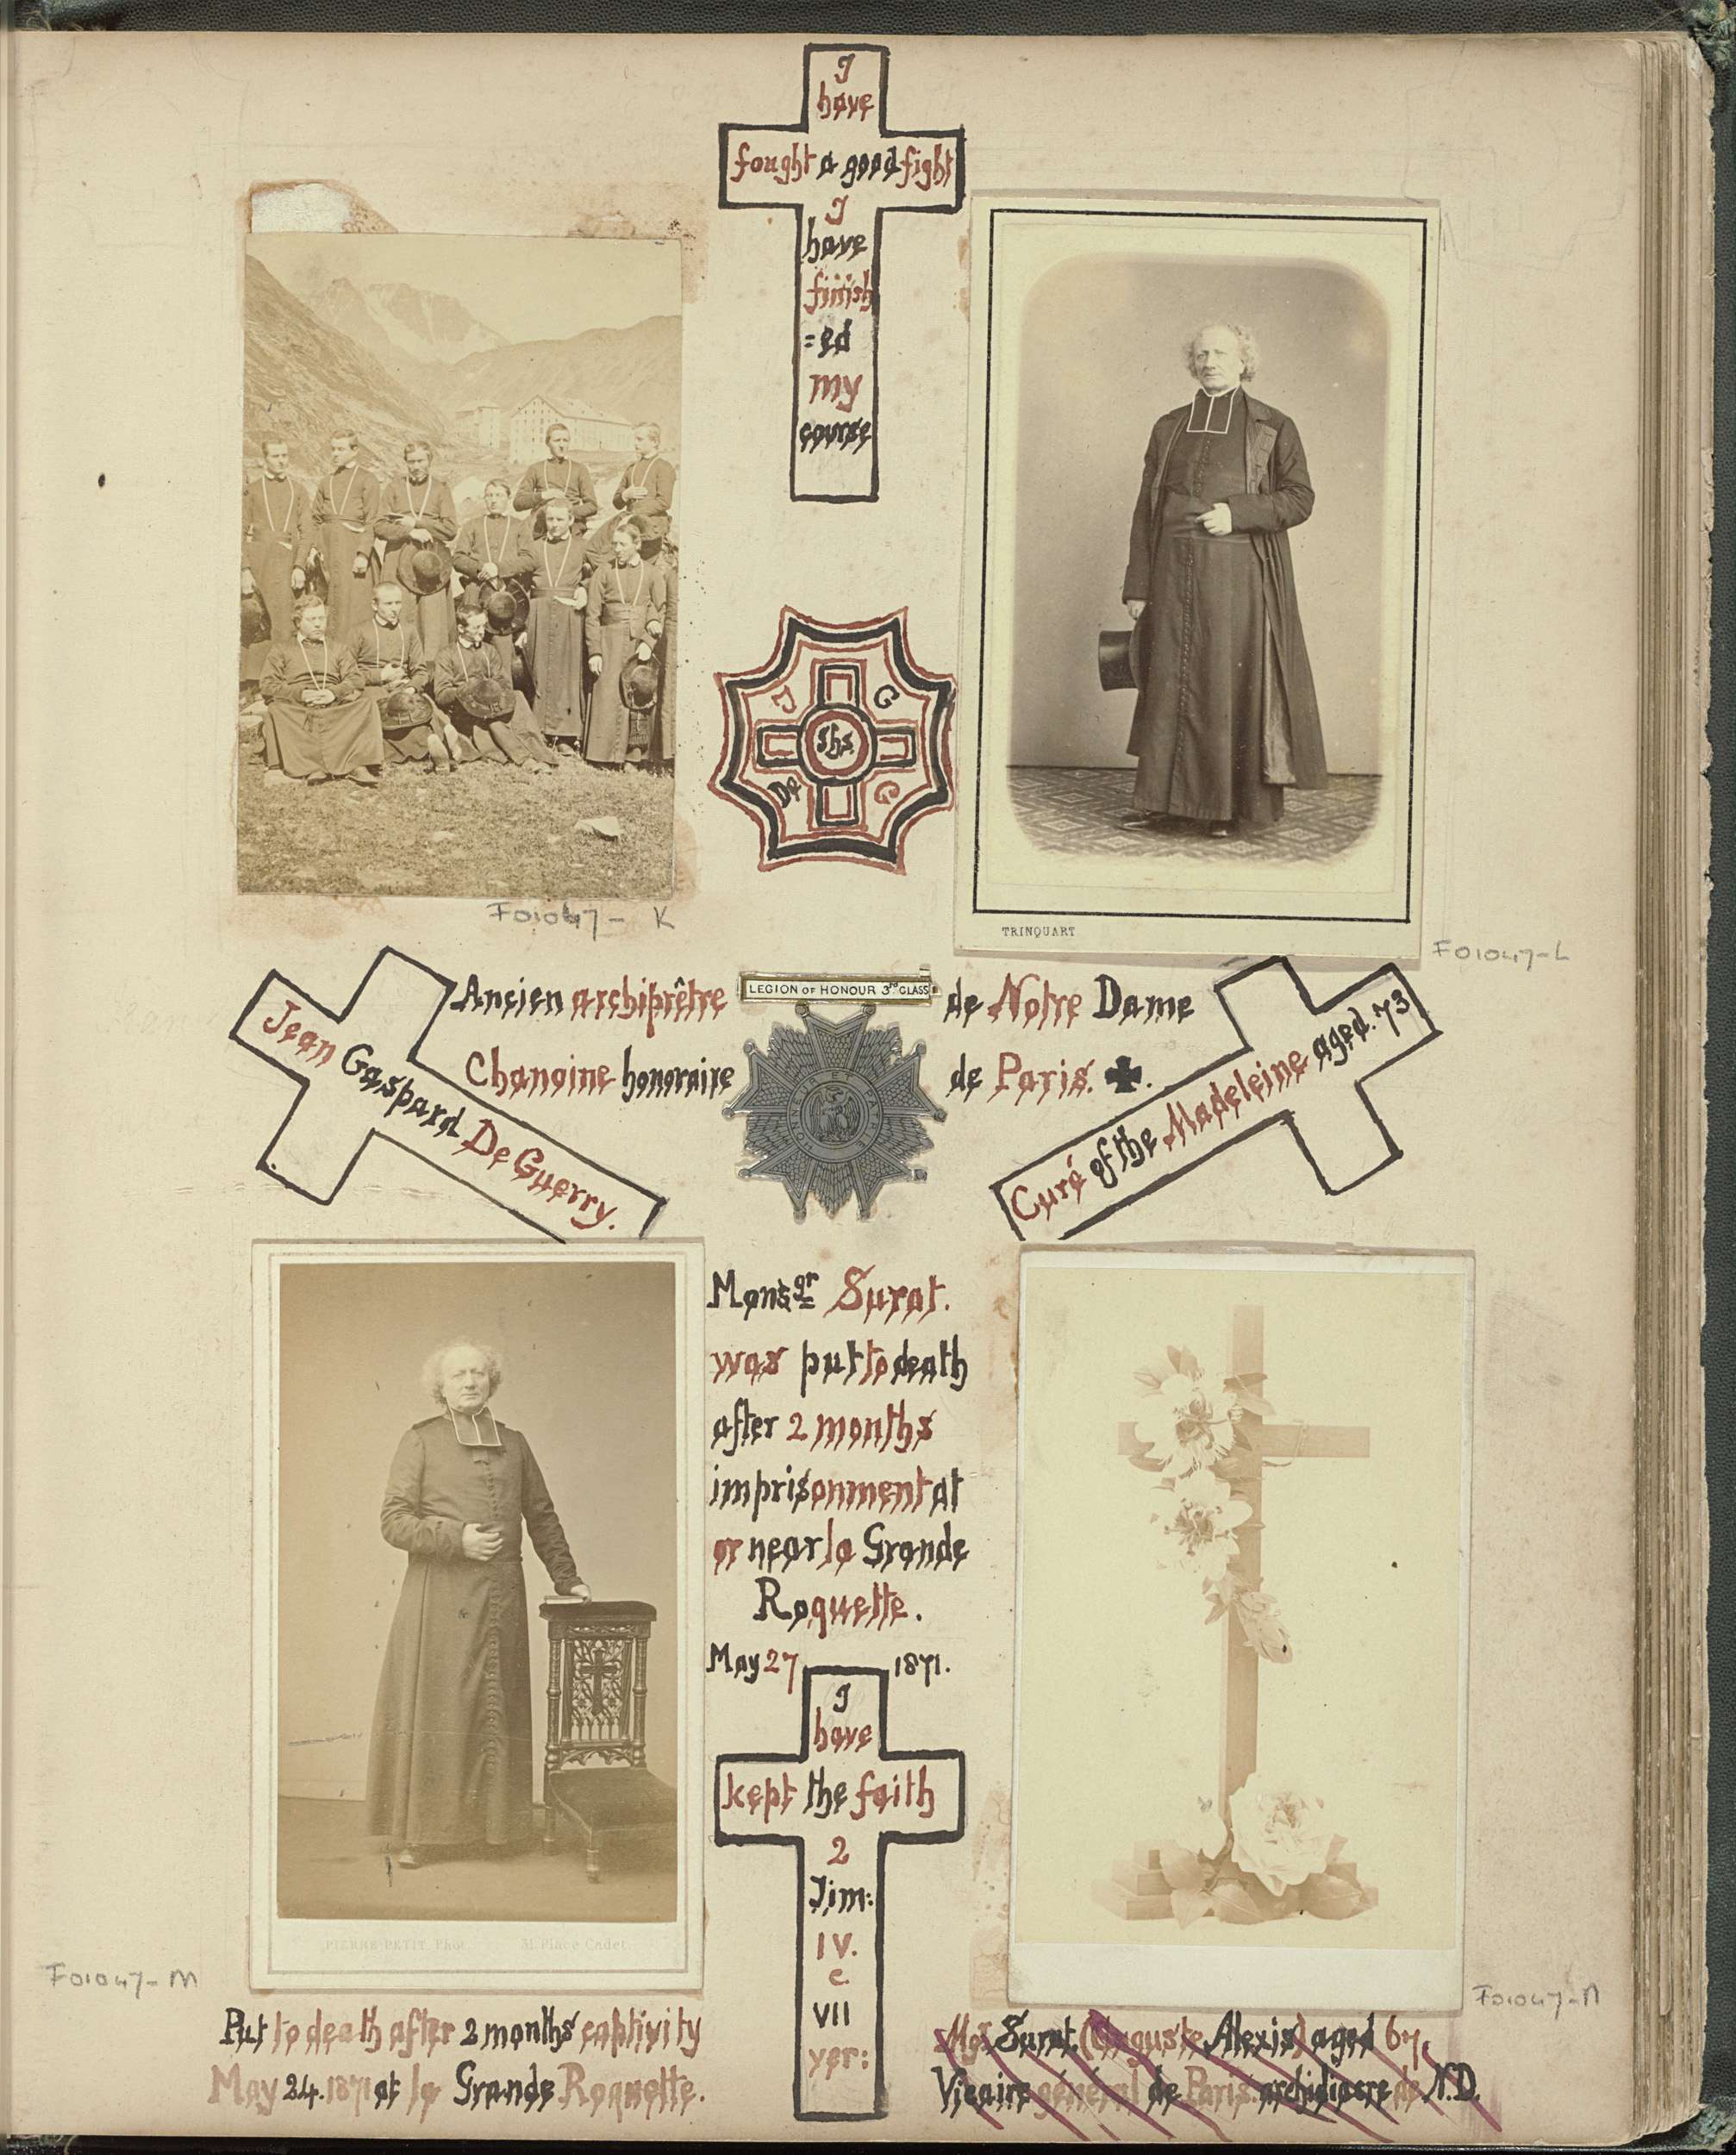 I
have
fought a good fight
I
have
finish
=ed
my
course
J G
Ihs.
De G
F01047- K
TRINQUART
F01047-L
Jean Gaspard De Guerry.
Ancien archiprêtre de Notre Dame
Chanoine honoraire de Paris.
LEGION OF HONOUR 3rd CLASS
HONNEUR ET PATRIE
Curé of the Madeleine aged. 73
Monsgr Surat.
was put to death
after 2 months
imprisonment at
or near la Grande
Roquette.
May 27 1871.
I
have
kept the faith
2
Tim:
IV.
c.
VII
ver:
PIERRE PETIT Phot. 31. Place Cadet.
F01047-M
Put to death after 2 months captivity
May 24. 1871 at la Grande Roquette.
F01047-N
Mgr Surat. (Auguste Alexis) aged 67,
Vicaire général de Paris. archidiacre de N.D.